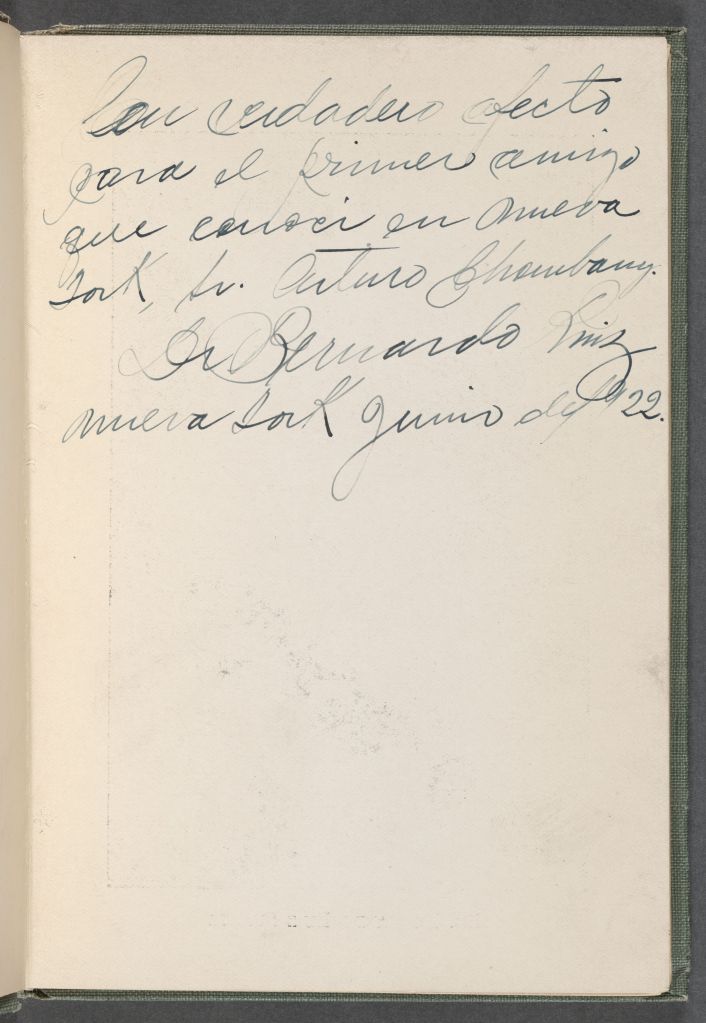 Con verdadero afecto
para el primer amigo
que conoci en Nueva
York, Sr. Arturo Schomburg.
Dr. Bernardo Ruiz
Nueva York Junio de 1922.